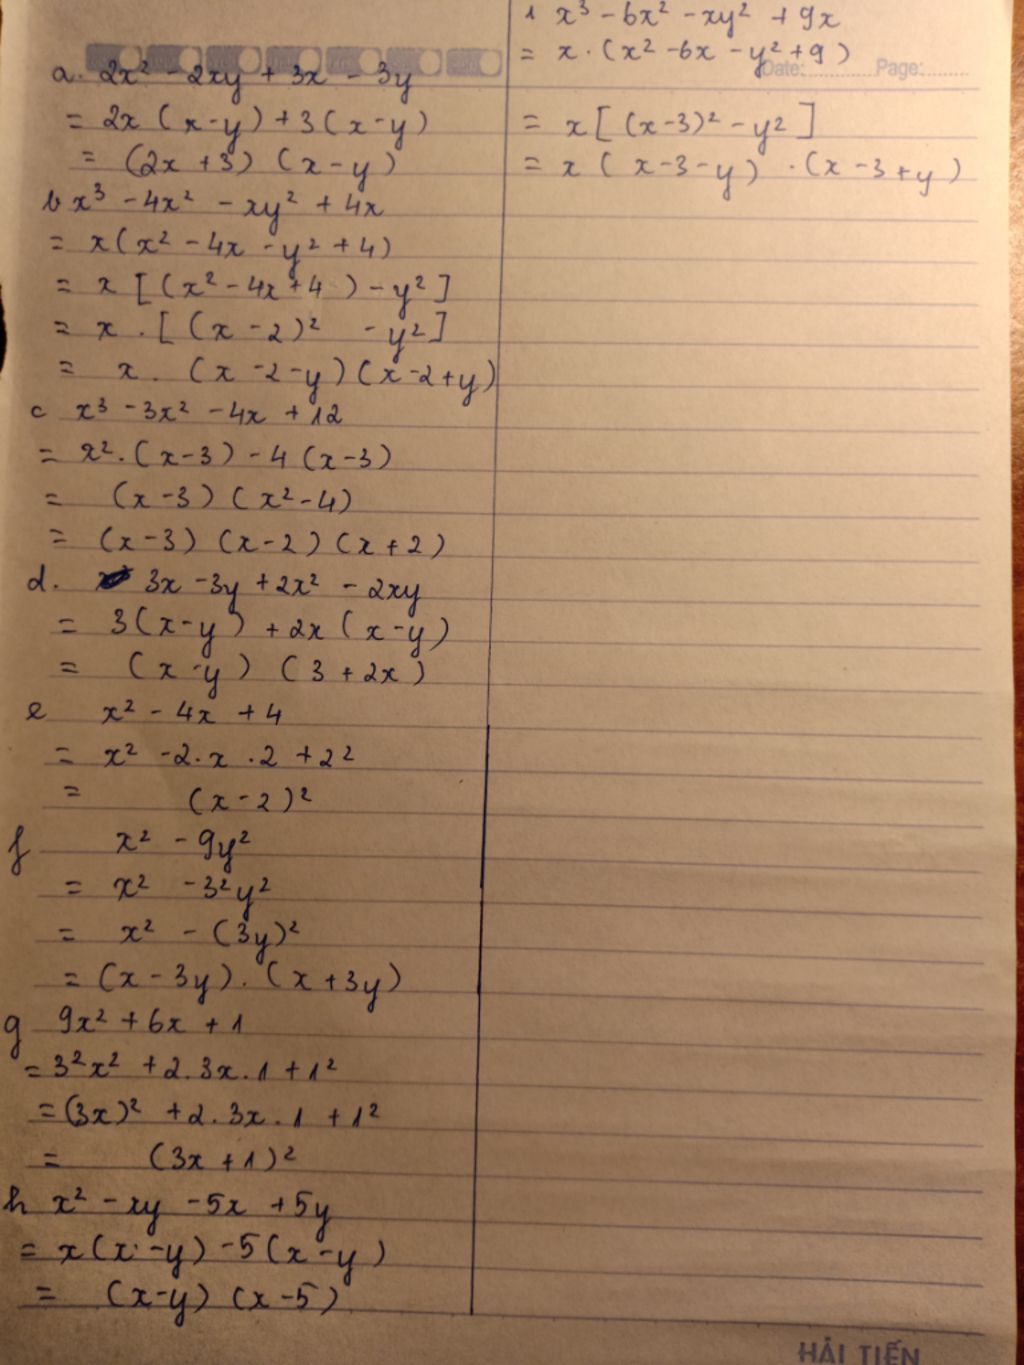 a. 2x² - 2xy + 3x - 3y
= 2x (x-y) + 3(x-y)
= (2x+3) (x-y)
b x³ - 4x² - xy² + 4x
= x(x² - 4x - y² + 4)
= x [(x² - 4x + 4) - y²]
= x . [(x - 2)² - y²]
= x . (x - 2 - y)(x - 2 + y)
c x³ - 3x² - 4x + 12
= x² . (x-3) - 4 (x-3)
= (x-3) (x² - 4)
= (x-3) (x-2) (x+2)
d. 3x - 3y + 2x² - 2xy
= 3(x-y) + 2x (x-y)
= (x-y) (3 + 2x)
e x² - 4x + 4
= x² - 2.x.2 + 2²
= (x-2)²
f x² - 9y²
= x² - 3²y²
= x² - (3y)²
= (x - 3y) . (x + 3y)
g 9x² + 6x + 1
= 3²x² + 2.3x.1 + 1²
= (3x)² + 2.3x.1 + 1²
= (3x+1)²
h x² - xy - 5x + 5y
= x(x-y) - 5(x-y)
= (x-y) (x-5)
i x³ - 6x² - xy² + 9x
= x . (x² - 6x - y² + 9)
Date: Page:
= x [(x-3)² - y²]
= x (x - 3 - y) . (x - 3 + y)
HẢI TIẾN